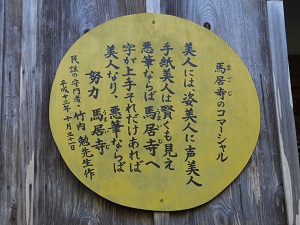 馬居寺のコマーシャル
まごじ
美人には、姿美人に声美人
手紙美人は賢くも見え
悪筆ならば馬居寺へ
字が上手それだけあれば
美人なり、悪筆ならば
努力 馬居寺
民謡の守門者・竹内勉先生作
平成十三年十月三十一日